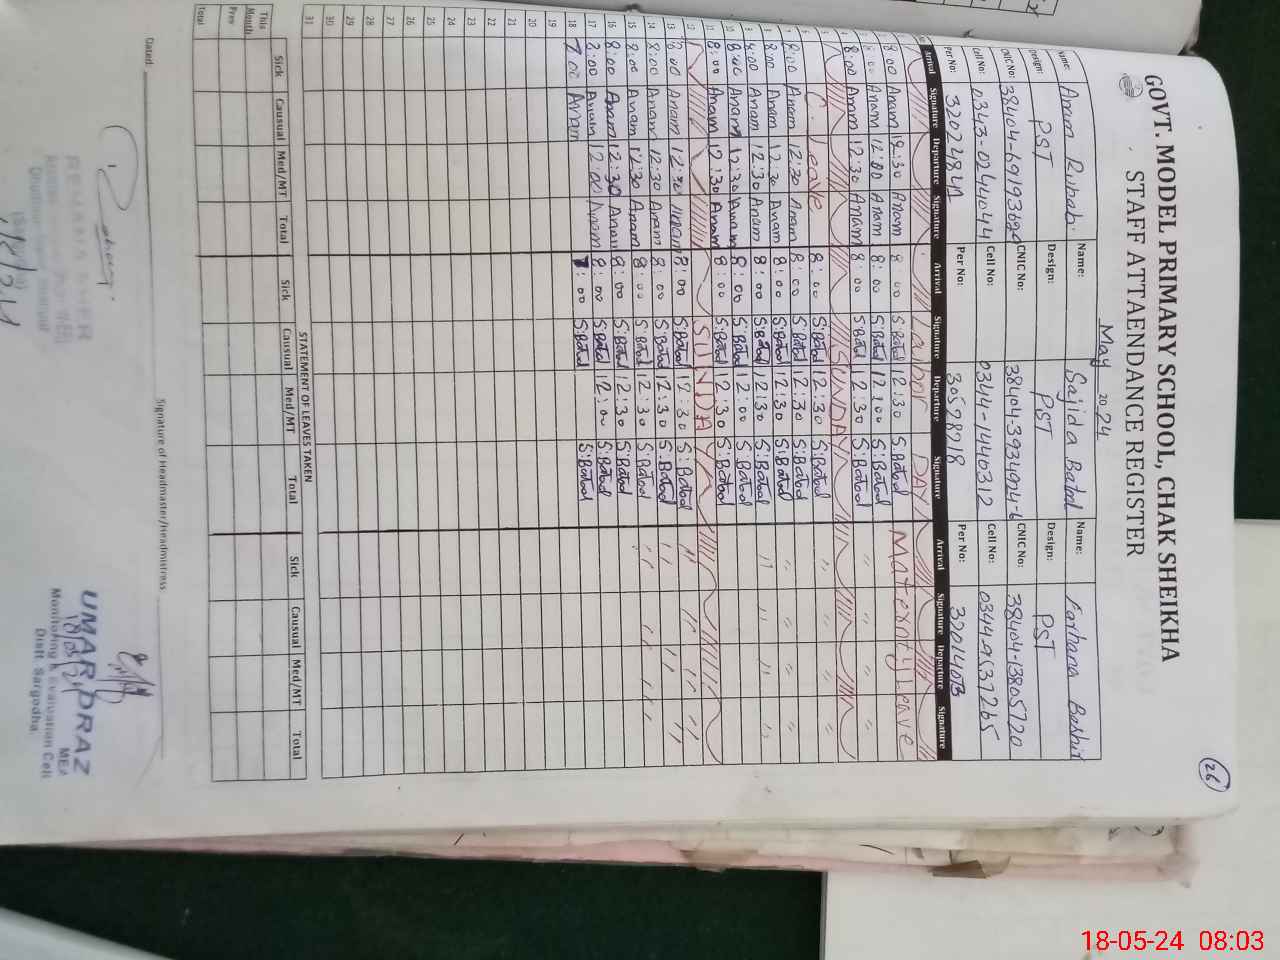 26
GOVT. MODEL PRIMARY SCHOOL, CHAK SHEIKHA
STAFF ATTAENDANCE REGISTER
May 2024
Name: Anam Rubab Name: Sajida Batool Name: Farhana Bashir
Design: PST Design: PST Design: PST
CNIC No: CNIC No: 38404-3934994-6 CNIC No: 38404-13805720
Cell No: 0343-0244044 Cell No: 0344-1440312 Cell No: 0344-9537265
Per No: Per No: 30578718 Per No: 32014013
Arrival Signature Departure Signature Arrival Signature Departure Signature Arrival Signature Departure Signature
Labour DAY
8:00 Anam 12:30 Anam 8:00 S.Batool 12:30 S.Batool Maternty Leave
8:00 Anam 12:00 Anam 8:00 S.Batool 12:00 S.Batool "
8:00 Anam 12:30 Anam 8:00 S.Batool 12:30 S.Batool
SUNDAY
6 C. Leave 8:00 S.Batool 12:30 S.Batool "
7 8:00 Anam 12:30 Anam 8:00 S.Batool 12:30 S.Batool
8 8:00 Anam 12:30 Anam 8:00 S.Batool 12:30 S.Batool "
9 8:00 Anam 12:30 Anam 8:00 S.Batool 12:30 S.Batool "
10 8:00 Anam 12:30 Anam 8:00 S.Batool 12:00 S.Batool
11 8:00 Anam 12:30 Anam 8:00 S.Batool 12:30 S.Batool
12 SUNDAY
13 8:00 Anam 12:30 Anam 8:00 S.Batool 12:30 S.Batool "
14 8:00 Anam 12:30 Anam 8:00 S.Batool 12:30 S.Batool "
15 8:00 Anam 12:30 Anam 8:00 S.Batool 12:30 S.Batool "
16 8:00 Anam 12:30 Anam 8:00 S.Batool 12:30 S.Batool
17 8:00 Anam 12:00 Anam 8:00 S.Batool 12:00 S.Batool
18 7:00 Anam 7:00 S.Batool S.Batool
19
20
21
22
23
24
25
26
27
28
29
30
31
STATEMENT OF LEAVES TAKEN
Sick Causual Med/MT Total Sick Causual Med/MT Total Sick Causual Med/MT Total
This Month
Prev
Total
Dated: Signature of Headmaster/Headmistress
UMAR DRAZ
MEA
18/05/24
Monitoring & Evaluation Cell
Distt. Sargodha
18-05-24 08:03